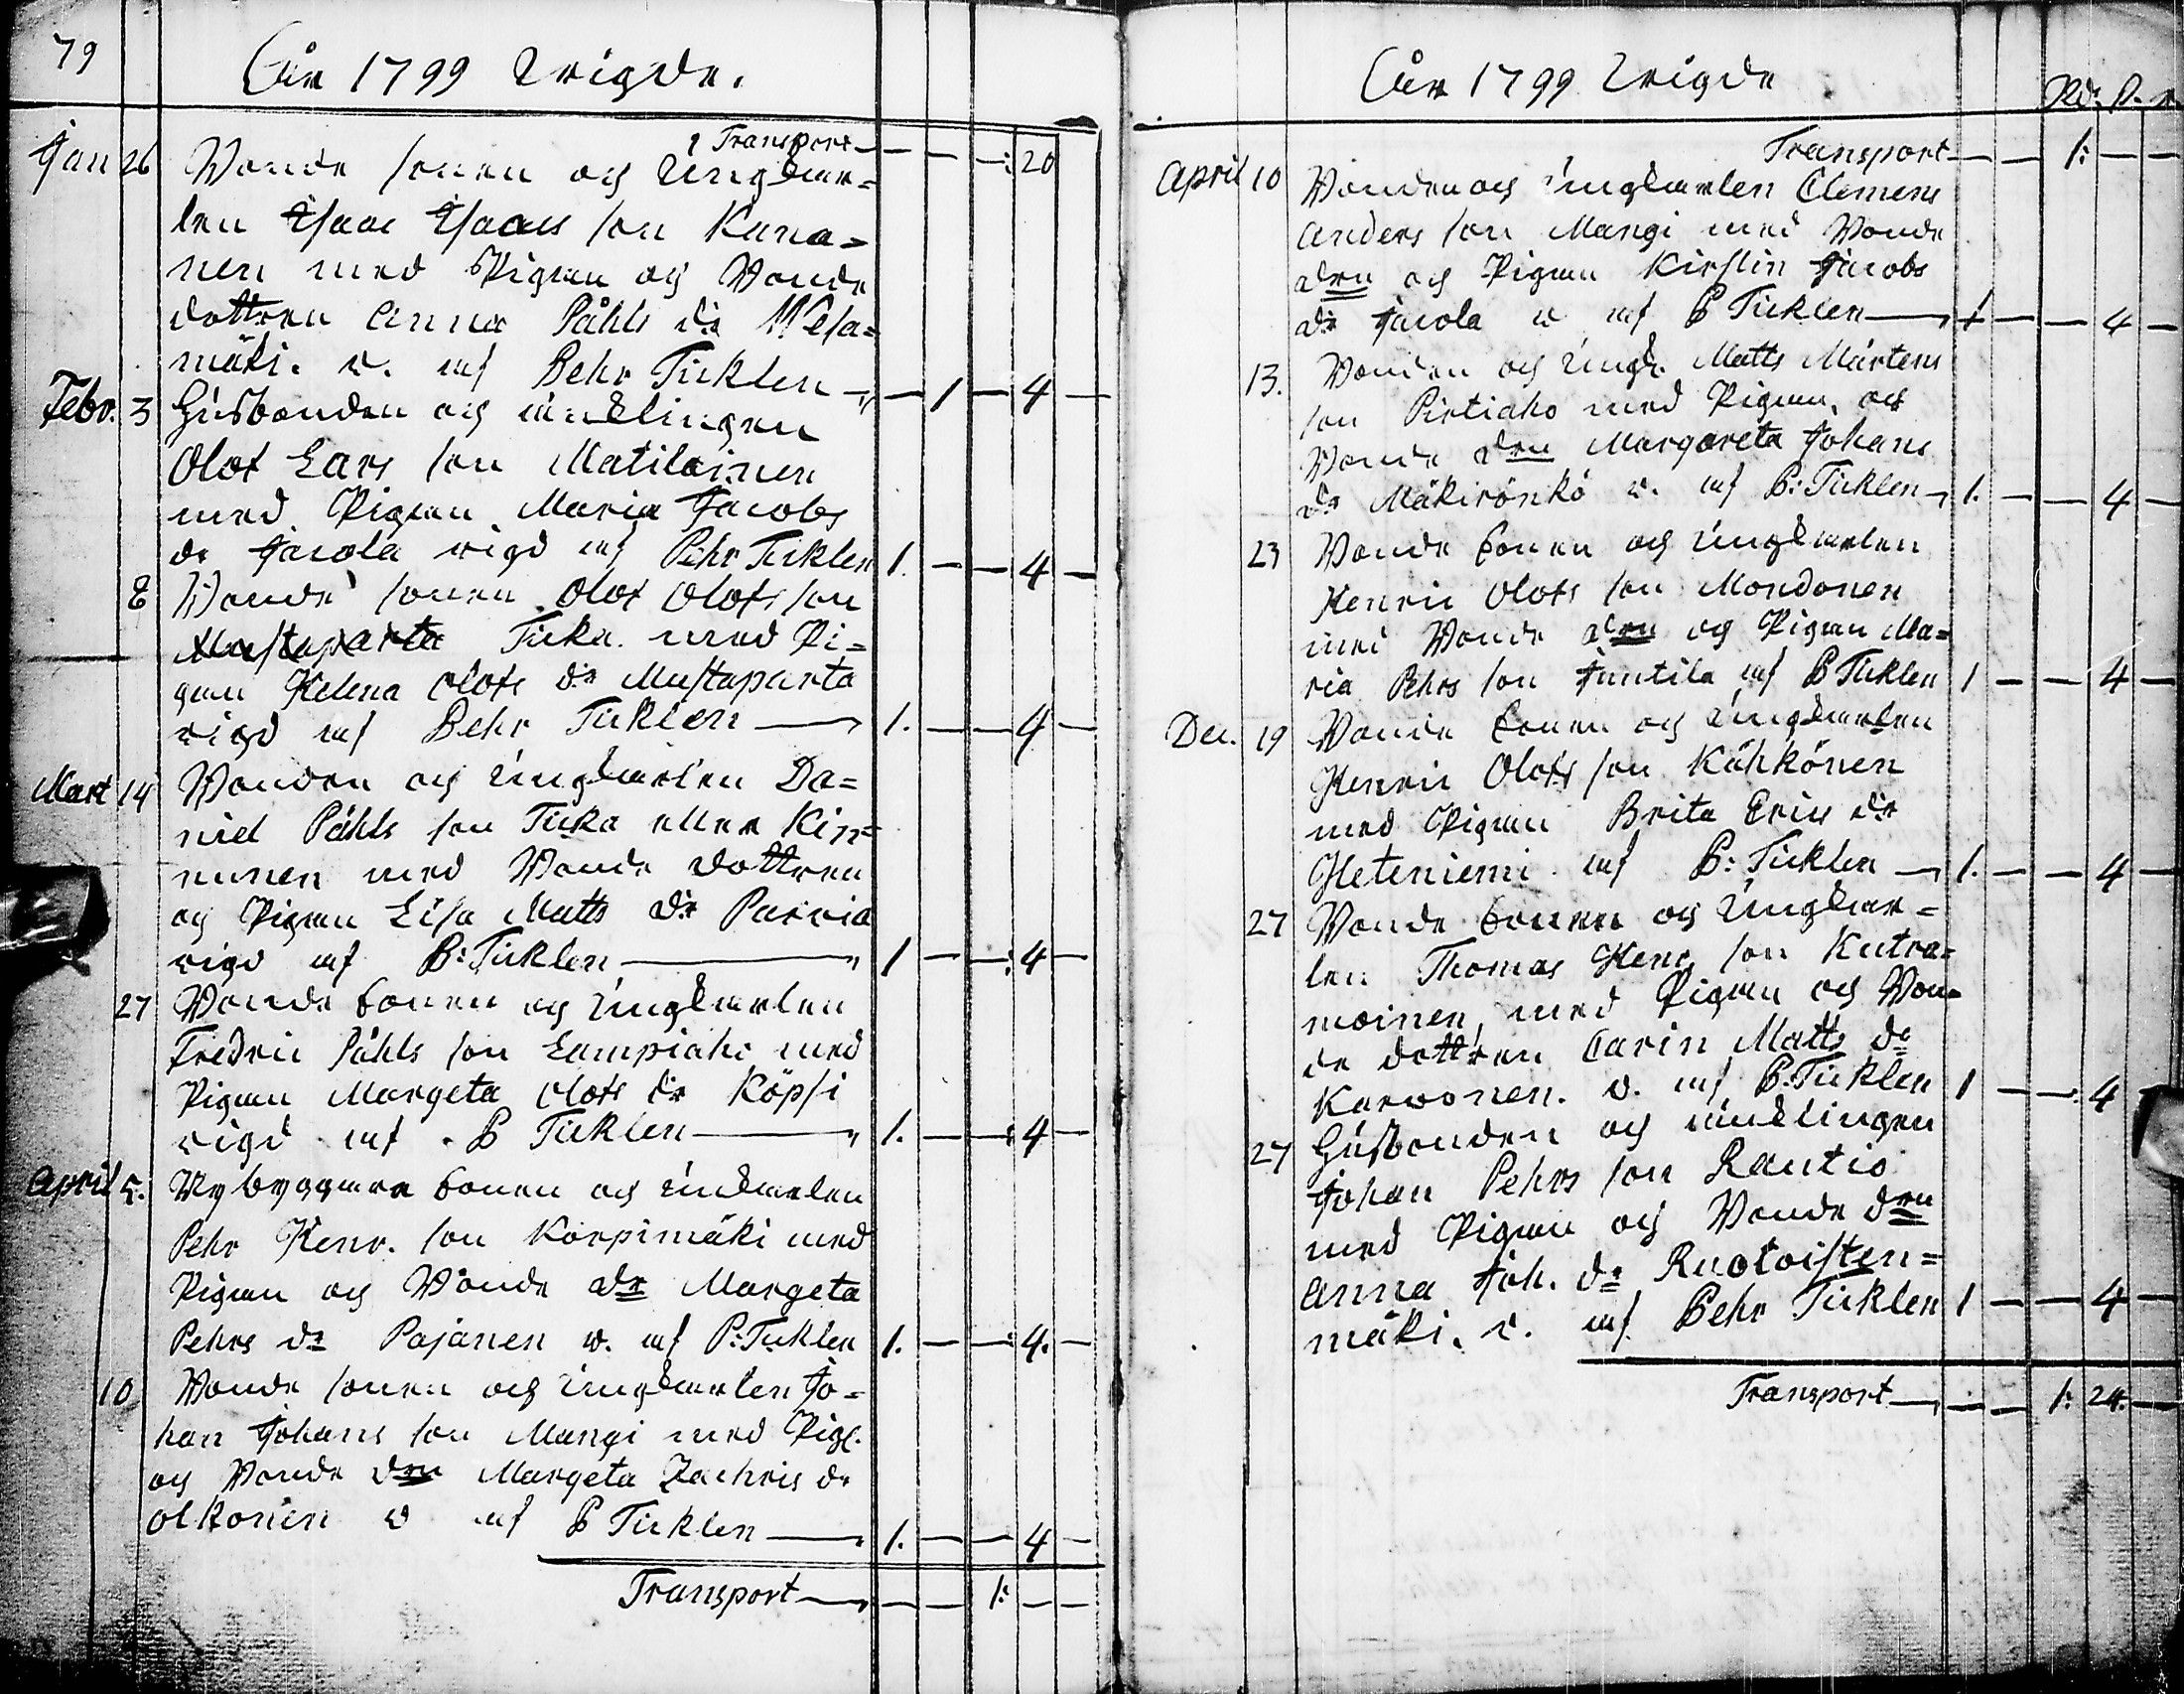 79
År 1799 Wigde.
Transport — — — : 20
Jan 26 Bonde sonen och Ungkar=
len Isaac Isaacs son Kana=
nen med Pigan och Bonde
dottren Anna Påhls dr Wesa=
mäki. v. af Pehr Ticklen — 1 — 4 —
Febr. 3 Husbonden och enklingen
Olof Lars son Matilainen
med Pigan Maria Jacobs
dr Jacola vigd af Pehr Ticklen 1. — — 4 —
8 Bonde sonen Olof Olofs son
Mustaparta Ticka med Pi=
gan Helena Olofs dr Mustaparta
vigd af Pehr Ticklen — 1. — — 4 —
Mart 14 Bonden och Ungkarlen Da=
niel Påhls son Ticka eller Kin=
nunen med Bonde dottren
och Pigan Lisa Matts dr Parvia
vigd af P: Ticklen — 1 — — : 4 —
27 Bonde sonen och Ungkarlen
Fredric Påhls son Lampiaho med
Pigan Margeta Olofs dr Köpsi
vigd af P Ticklen — 1. — — : 4 —
April 5. Nybyggare sonen och Undkarlen
Pehr Henr. son Korpimäki med
Pigan och Bonde dr Margeta
Pehrs dr Pajanen v. af P: Ticklen 1. — — : 4. —
10 Bonde sonen och Ungkarlen Jo=
han Johans son Mangi med Pig.
och Bonde dren Margeta Zachris dr
Olkonen v af P Ticklen — 1. — — 4 —
Transport — — — 1: — —
År 1799 Wigde
Rd. s. r
Transport — — 1: — —
April 10 Bonden och Ungkarlen Clemens
Anders son Mangi med Bonde
dren och Pigan Kirstin Jacobs
dr Jacola v af P Ticklen — 1 — — 4 —
13. Bonden och Ungk. Matts Mårtens
son Pirtiaho med Pigan, och
Bonde dren Margareta Johans
dr Mäkirönkö v. af P: Ticklen 1. — — 4 —
23 Bonde sonen och Ungkarlen
Henric Olofs son Mondonen
med Bonde dren och Pigan Ma=
ria Pehrs son Juntila af P Ticklen 1 — — 4 —
Dec. 19 Bonde sonen och Ungkarlen
Henric Olofs son Kähkönen
med Pigan Brita Erics dr
Heteniemi af P: Ticklen — 1. — — 4 —
27 Bonde sonen och Ungkar=
len Thomas Henr. son Kutra=
moinen, med Pigan och Bon=
de dottren Carin Matts dr
Karvonen. v. af P. Ticklen 1 — — : 4
27 Husbonden och enklingen
Johan Pehrs son Rautio
med Pigan och Bonde dren
Anna Joh. dr Ruotoisten=
mäki. v. af Pehr Ticklen 1 — — 4 —
Transport — — — 1: 24. —